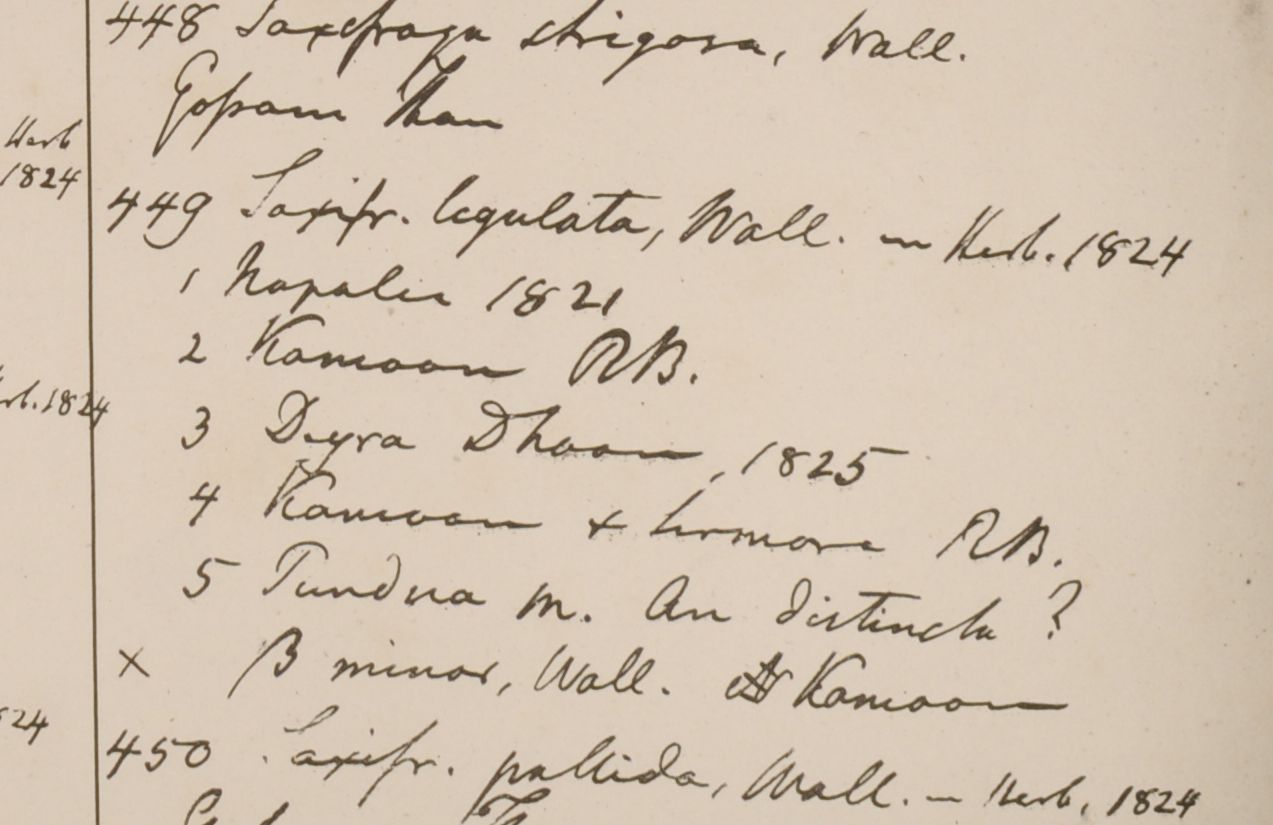 Herb
1824
rb. 1824
24
448 Saxifraga strigosa, Wall.
Gossam Than
449 Saxifr. ligulata, Wall. in Herb. 1824
1 Napalia 1821
2 Kamoon RB.
3 Deyra Dhoon, 1825
4 Kamoon & Sirmore RB.
5 Tundua m. An distincta ?
× β minor, Wall. Kamoon
450 Saxifr. pallida, Wall. in Herb. 1824